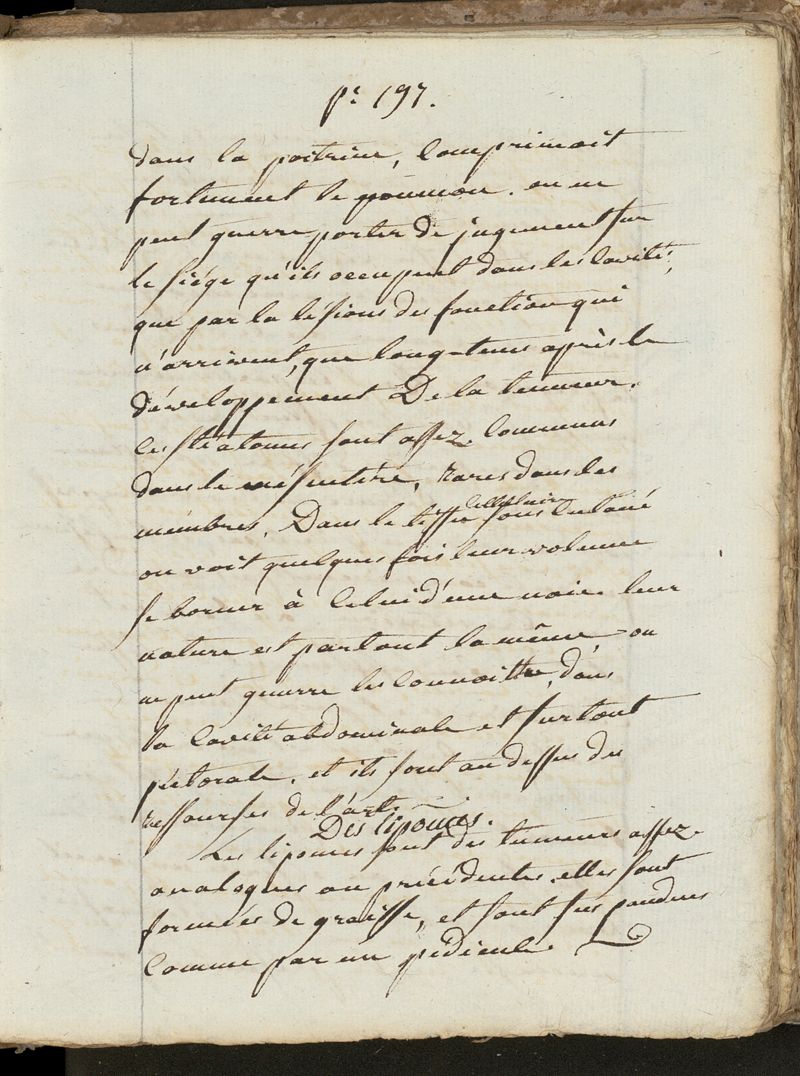 pe 197.
dans la poitrine, Comprimoit
fortement le poumon. on ne
peut guerre porter de jugement sur
le siége qu'ils occupent dans les Cavités,
que par la lésions des fonction qui
n'arrivent, que long-tems après le
développement De la tumeur.
Ces stéatomes sont assez Communs
dans le mésentère, rares dans les
membres. Dans le tissu Cellulaire sous Cutané
on voit quelques fois leur volume
se borner à Celui d'une noix. leur
nature est partout la même on
ne peut guerre les Connoitre, dans
la Cavité abdominale et surtout
pectorale, et ils sont au dessus des
ressourses de l'art.
Des lipomes.
Les lipomes sont des tumeurs assez
analogues au précédentes. elles sont
formées de graisse, et sont suspendues
Comme par un pédicule.